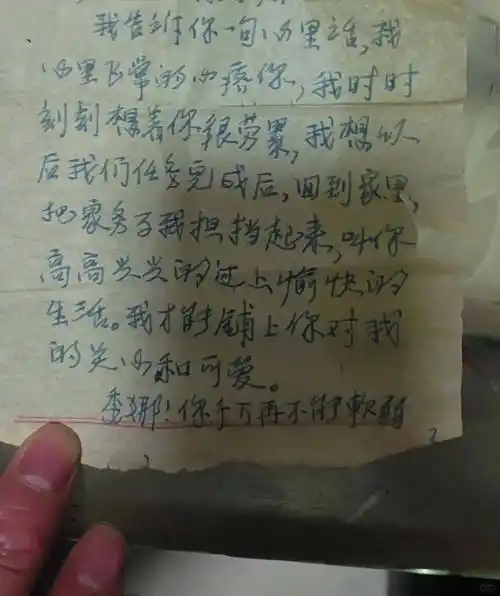 我告诉你一句心里话,我
心里非常的心疼你,我时时
刻刻想着你很劳累,我想以
后我们任务完成后,回到家里,
把家务了我担挡起来,叫你
高高兴兴的过上愉快的
生活。我才能铺上你对我
的关心和可爱。
李娜!你千万再不能軟弱
2